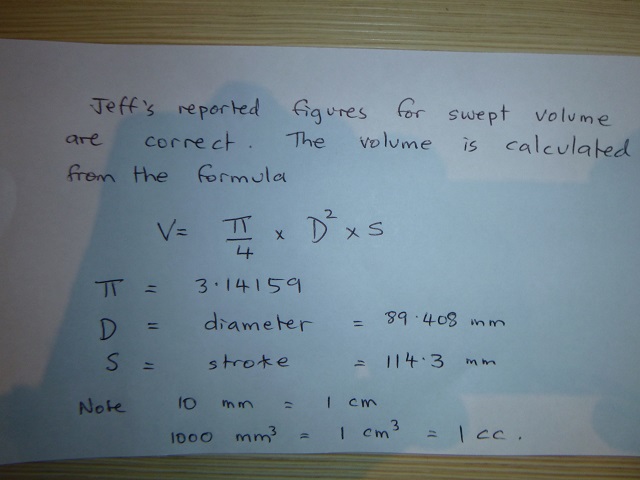 Jeff's reported figures for swept volume
are correct. The volume is calculated
from the formula
V= π/4 x D² x S
π = 3.14159
D = diameter = 89.408 mm
S = stroke = 114.3 mm
Note 10 mm = 1 cm
1000 mm³ = 1 cm³ = 1 cc.